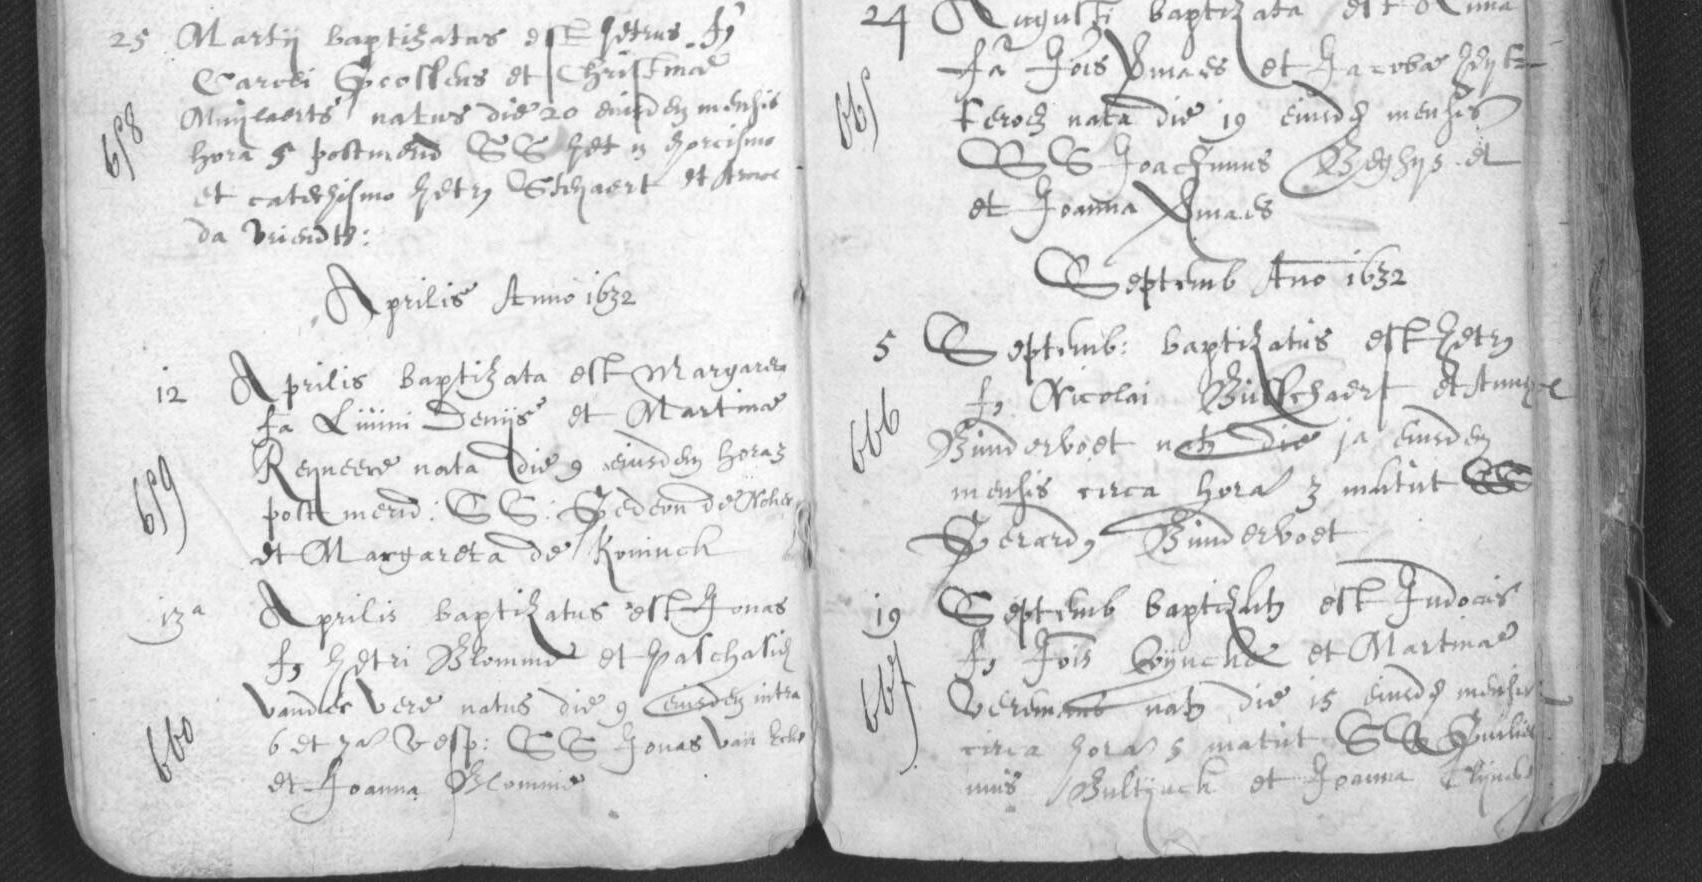 25 Martij baptizatus est Petrus f9
Caroli Scoskens et Christinae
Muylaerts natus die 20 eiusdem mensis
658
hora 5 postmerid SS Pet 9 Exorcismo
et catechismo Petr9 Schaert et
da Vriendts:
Aprilis Anno 1632
12 Aprilis baptizata est Margareta
fa Livini Denijs et Martinae
Reyneere nata die 9 eiusdem hora 3
659
post merid: SS: Gedeon de
et Margareta de Koninck
13a Aprilis baptizatus est Jonas
f9 Petri Blomme et Paschasia
vander Vere natus die 9 eiusdem intra
660
6 et 7a Vesp: SS Jonas van Ecke
et Joanna Blomme
24 Augusti baptizata est Anna
fa Jois Smaes et Jacobae
665
nata die 19 eiusd mensis
SS Joachimus Beghijs et
et Joanna Smaes
Septemb Ano 1632
5 Septemb: baptizatus est Petr9
f9 Nicolai Busschaert et
666
Bundervoet nat9 die ja eiusdem
mensis circa hora 3 matut SS
Gerard9 Bundervoet
19 Septemb baptizat9 est Judocus
f9 Jois Cyncke et Martinae
667
nat9 die 15 eiusd mensis
circa hora 5 matut SS Guiliel
mus Bultynck et Joanna